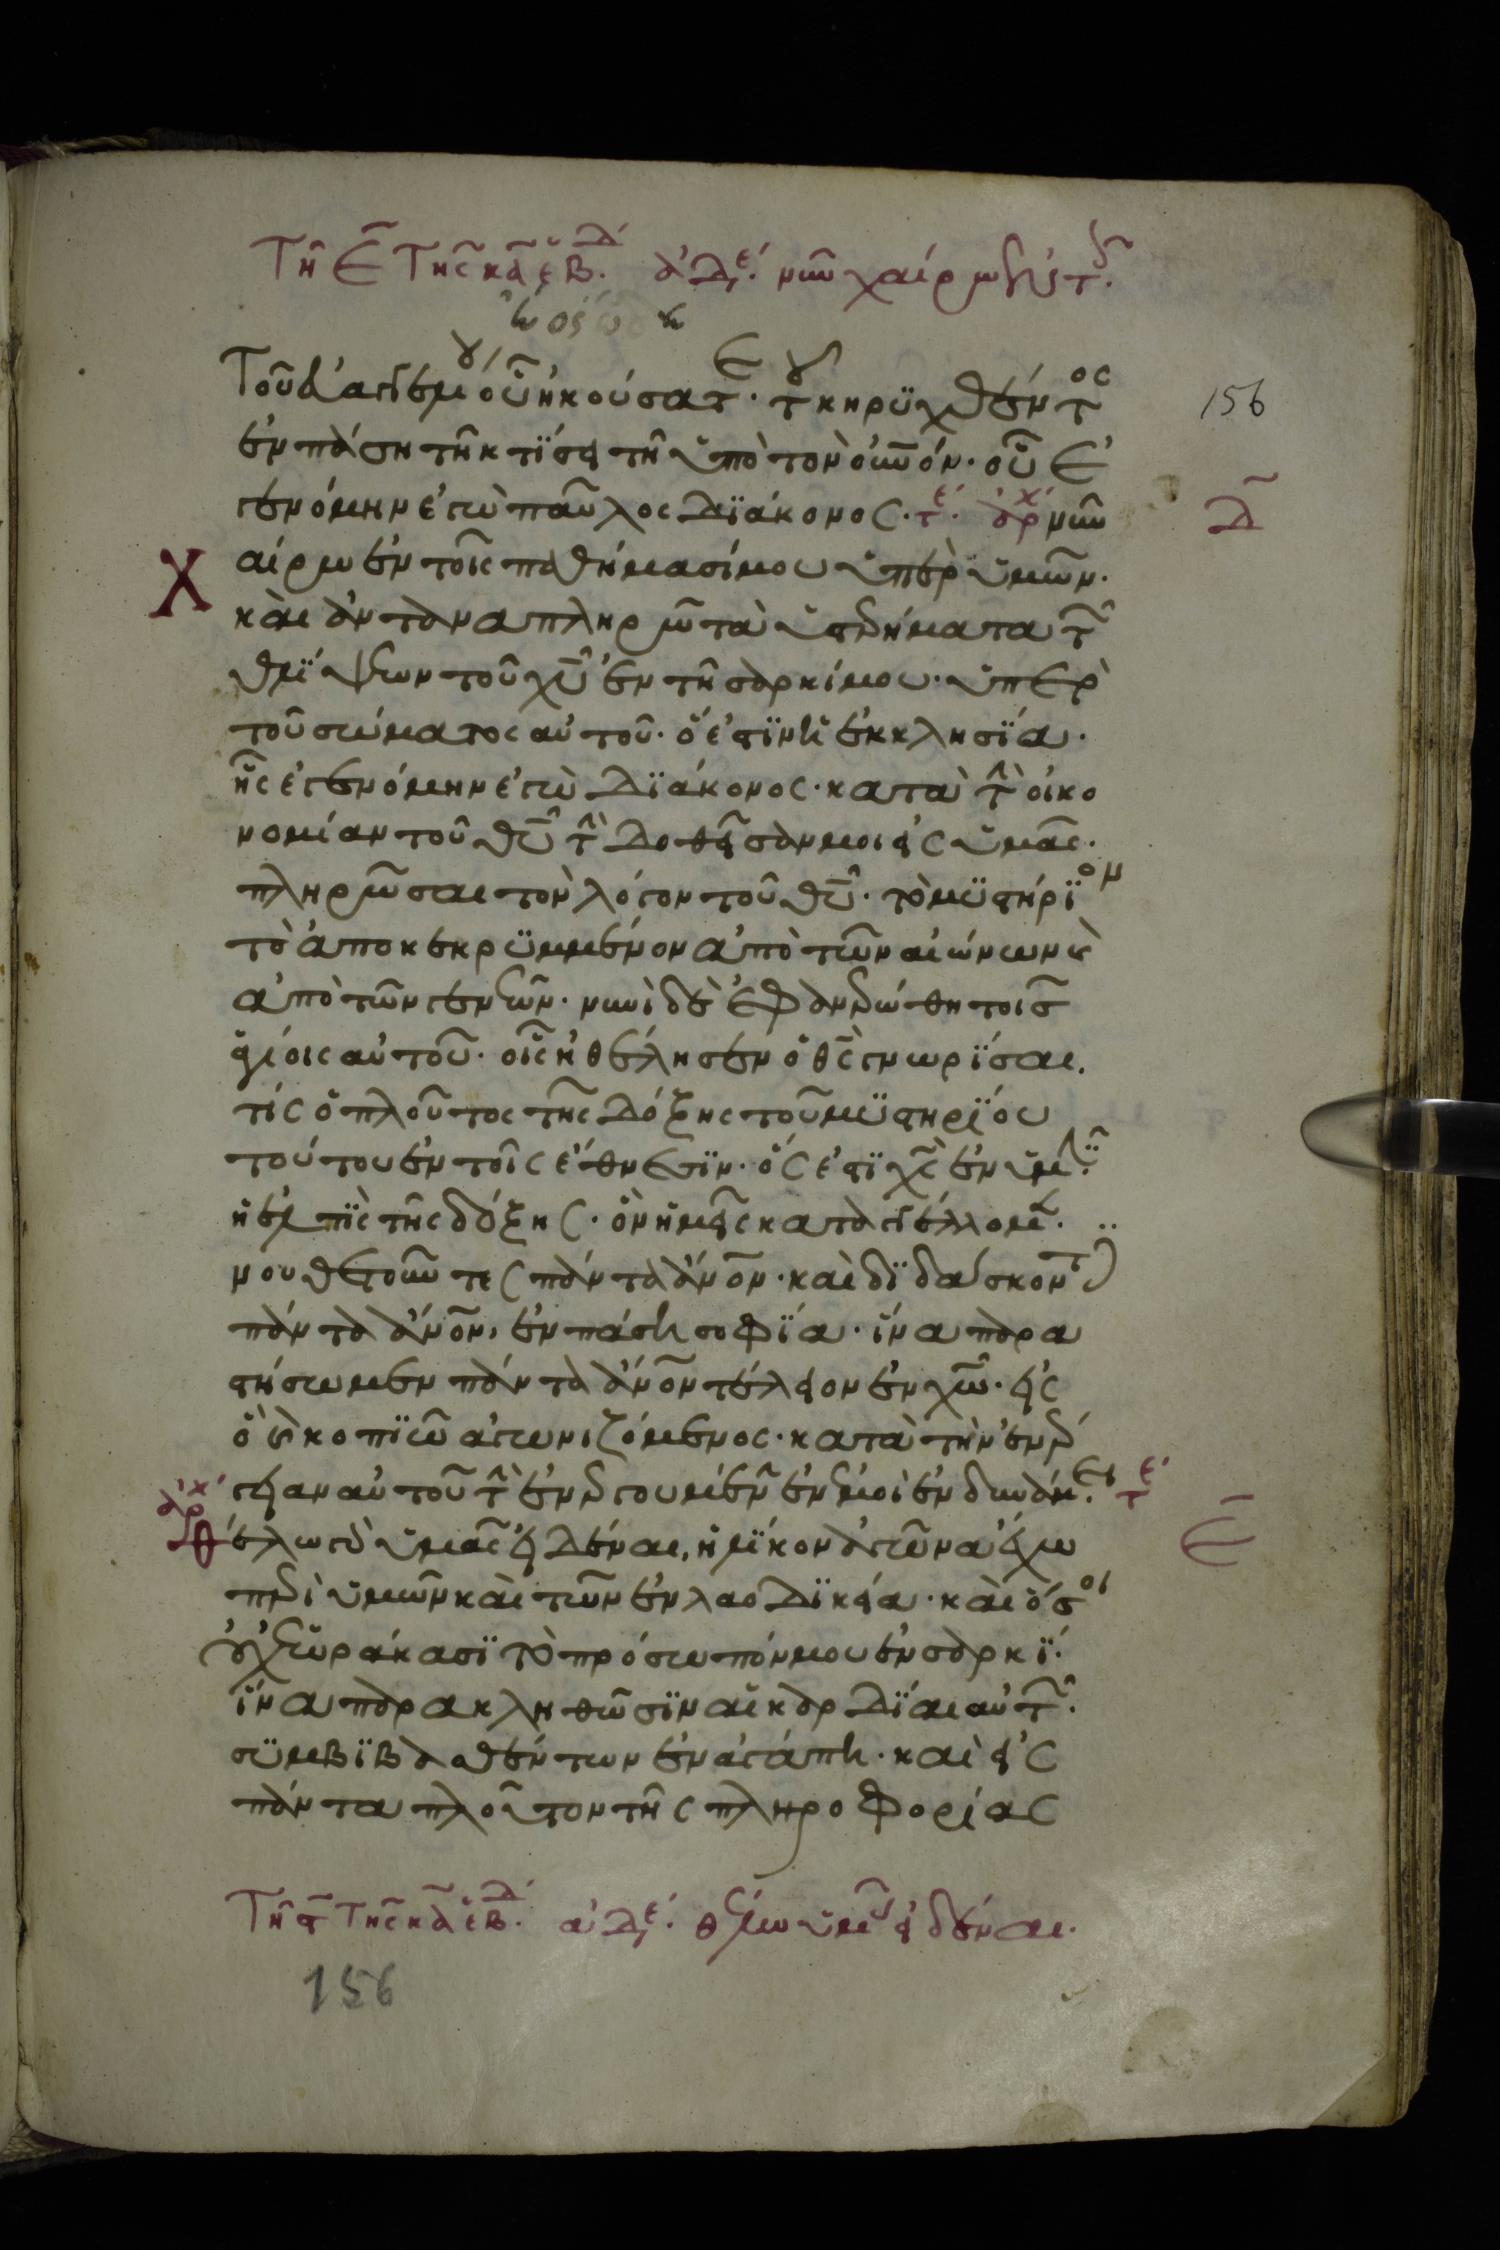 Τῆ Ε̅ τῆς κδ ἑβδ. ἀδε. νῦν χαίρω ἐν τ.
Τοῦ εὐαγγελίου οὗ ἠκούσατε· τοῦ κηρϋχθέντος
ἐν πάση τῆ κτίσει τῆ ὑπὸ τὸν οὐνόν· οὗ ἐ
γενόμην ἐγὼ παῦλος διάκονος· τε. ἀρχ νῦν
Χαίρω ἐν τοῖς παθήμασί μου ὑπὲρ ὑμῶν·
καὶ ἀνταναπληρῶ τὰ ὑστερήματα τῶν
θλίψεων τοῦ χυ ἐν τῆ σαρκί μου· ὑπὲρ
τοῦ σώματος αὐτοῦ· ὅ ἐστϊν ἡ ἐκκλησϊα·
ἧς ἐγενόμην ἐγὼ διάκονος· κατὰ τὴν οἰκο
νομίαν τοῦ θυ τὴν δοθεῖσαν μοι εἰς ὑμᾶς·
πληρῶσαι τὸν λόγον τοῦ θυ· τὸ μϋστήριον
τὸ ἀποκεκρϋμμένον ἀπὸ τῶν αἰώνων κ
ἀπὸ τῶν γενεῶν· νυνὶ δὲ ἐφανερώθη τοῖς
ἁγίοις αὐτοῦ· οἷς ἠθέλησεν ὁ θς γνωρϊσαι,
τίς ὁ πλοῦτος τῆς δόξης τοῦ μϋστηρϊου
τούτου ἐν τοῖς ἔθνεσϊν· ὅς ἐστϊ χς ἐν ὑμῖν·
ἡ ἐλπϊς τῆς δόξης· ὃν ἡμεῖς καταγγέλλομεν·
νουθετοῦντες πάντα ἄνον· καὶ δϊδάσκοντες
πάντα ἄνον, ἐν πάση σοφϊα· ἵνα παρα
στήσωμεν πάντα ἄνον τέλειον ἐν χω· εἰς
ὃ κ κοπϊῶ ἀγωνιζόμενος· κατὰ τὴν ἐνέρ
γειαν αὐτοῦ τὴν ἐνεργουμένην ἐν ἐμοὶ ἐν δυνάμει· τε
ἀρχ Θέλω γὰρ ὑμᾶς εἰδέναι, ἡλϊκον ἀγῶνα ἔχω
περὶ ὑμῶν καὶ τῶν ἐν λαοδϊκεία· καὶ ὅσοι
οὐχ ἑωράκασϊ τὸ πρόσωπόν μου ἐν σαρκϊ·
ἵνα παρακληθῶσϊν αἱ καρδϊαι αὐτῶν·
σϋμβϊβασθέντων ἐν ἀγάπη· καὶ εἰς
πάντα πλοῦτον τῆς πληροφορίας
Τῆ ϛ τῆς κδ ἑβδ. ἀδε. θέλω ὑμᾶς εἰδέναι.
156
Δ̅
Ε̅
156